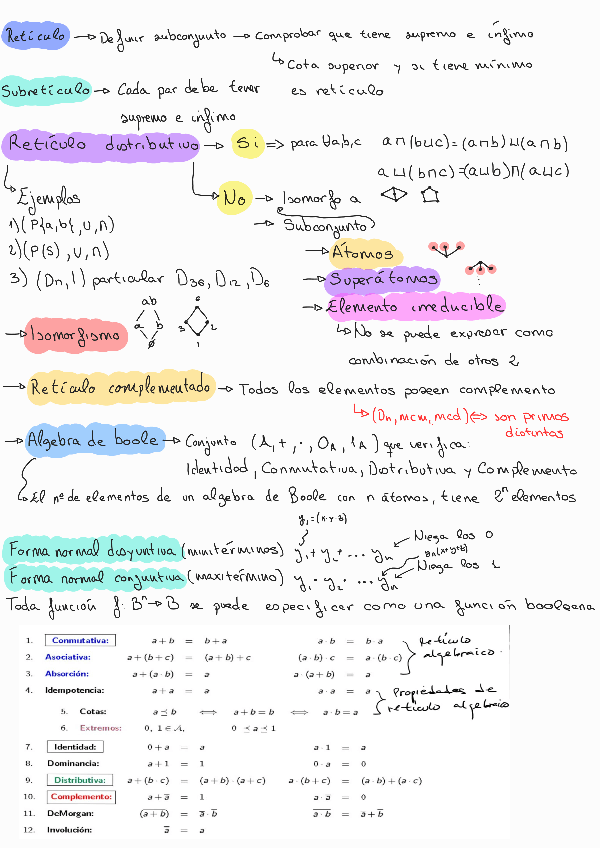 Retículo → Definir subconjunto → Comprobar que tiene supremo e ínfimo
↳ Cota superior y si tiene mínimo
es retículo
Subretículo → Cada par debe tener
supremo e ínfimo
Retículo distributivo → Si => para ∀a,b,c a⊓(b⊔c)=(a⊓b)⊔(a⊓b)
a⊔(b⊓c)=(a⊔b)⊓(a⊔c)
↳ Ejemplos
No → Isomorfo a
→ Subconjunto
1) (P{a,b{,∪,∩)
2) (P(S),∪,∩)
3) (Dn,|) particular D36, D12, D6
→ Átomos
→ Superátomos
→ Elemento irreducible
↳ No se puede expresar como
combinación de otros 2
→ Isomorfismo
ab
a b
∅
6
3 2
1
→ Retículo complementado → Todos los elementos poseen complemento
↳ (Dn, mcm, mcd) <=> son primos
distintos
→ Algebra de boole → Conjunto (A, +, ·, 0A, 1A) que verifica:
Identidad, Conmutativa, Distributiva y Complemento
↳ El nº de elementos de un algebra de Boole con n átomos, tiene 2ⁿ elementos
y₁=(x·y·z)
Forma normal disyuntiva (minitérminos) y₁+y₂+...yn Niega los 0
Forma normal conjuntiva (maxitérmino) y₁·y₂·...yn Niega los 1
Toda función f: Bⁿ→B se puede especificar como una función booleana
1. Conmutativa: a + b = b + a a · b = b · a
2. Asociativa: a + (b + c) = (a + b) + c (a · b) · c = a · (b · c)
3. Absorción: a + (b · a) = a a · (a + b) = a
Retículo
algebraico.
4. Idempotencia: a + a = a a · a = a
5. Cotas: a ≼ b ⟺ a + b = b ⟺ a · b = a
6. Extremos: 0, 1 ∈ A, 0 ≼ a ≼ 1
Propiedades de
retículo algebraico
7. Identidad: 0 + a = a a · 1 = a
8. Dominancia: a + 1 = 1 0 · a = 0
9. Distributiva: a + (b · c) = (a + b) · (a + c) a · (b + c) = (a · b) + (a · c)
10. Complemento: a + a̅ = 1 a · a̅ = 0
11. DeMorgan: (a + b)̅ = a̅ · b̅ a · b̅ = a̅ + b̅
12. Involución: a̿ = a